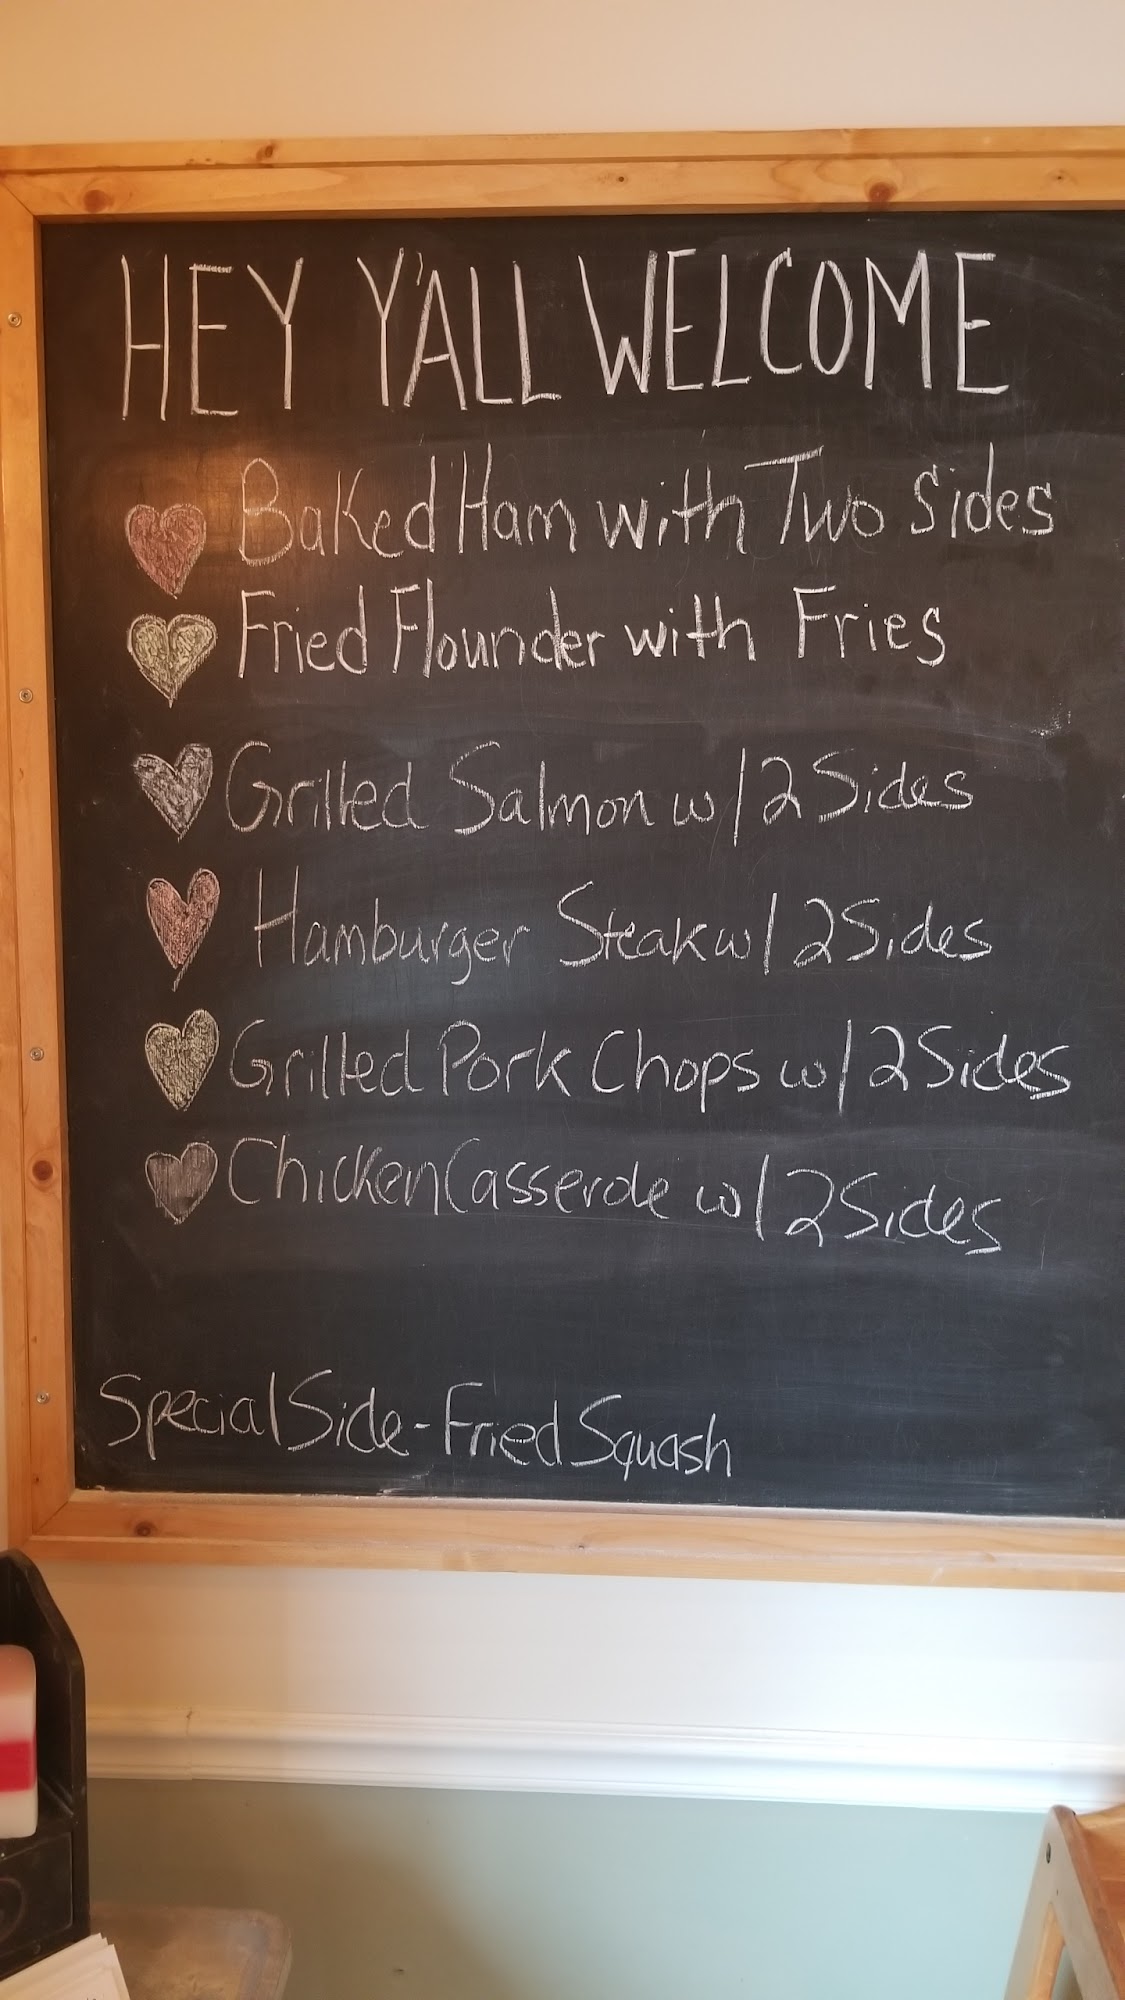 HEY Y'ALL WELCOME
Baked Ham with Two Sides
Fried Flounder with Fries
Grilled Salmon w/2 Sides
Hamburger Steak w/2 Sides
Grilled Pork Chops w/2 Sides
Chicken Casserole w/2 Sides
Special Side-Fried Squash